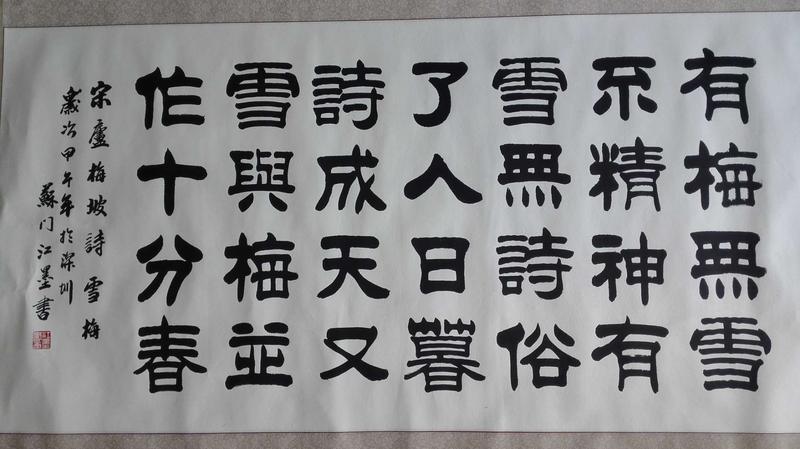 有梅無雪
不精神有
雪無詩俗
了人日暮
詩成天又
雪與梅並
作十分春
宋盧梅坡詩雪梅
歲次甲午年於深圳
蘇門江墨書